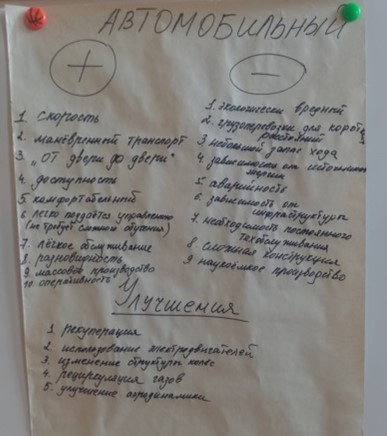 АВТОМОБИЛЬНЫЙ
+
1. Скорость
2. манёвренный транспорт
3. „От двери до двери"
4. доступность
5. комфортабельный
6 легко поддаётся управлению
(не требует сложного обучения)
7. лёгкое обслуживание
8. разновидность
9. массовое производство
10. оперативность
−
1. экологически вредный
2. грузоперевозки для коротких
расстояний
3 небольшой запас хода
4. зависимость от источников
энергии
5. аварийность
6. зависимость от
инфраструктуры
7. необходимость постоянного
техобслуживания
8 сложная конструкция
9 наукоёмкое производство
Улучшения
1. рекуперация
2. использование электродвигателей
3. изменение структуры колес
4. рециркуляция газов
5. улучшение аэродинамики